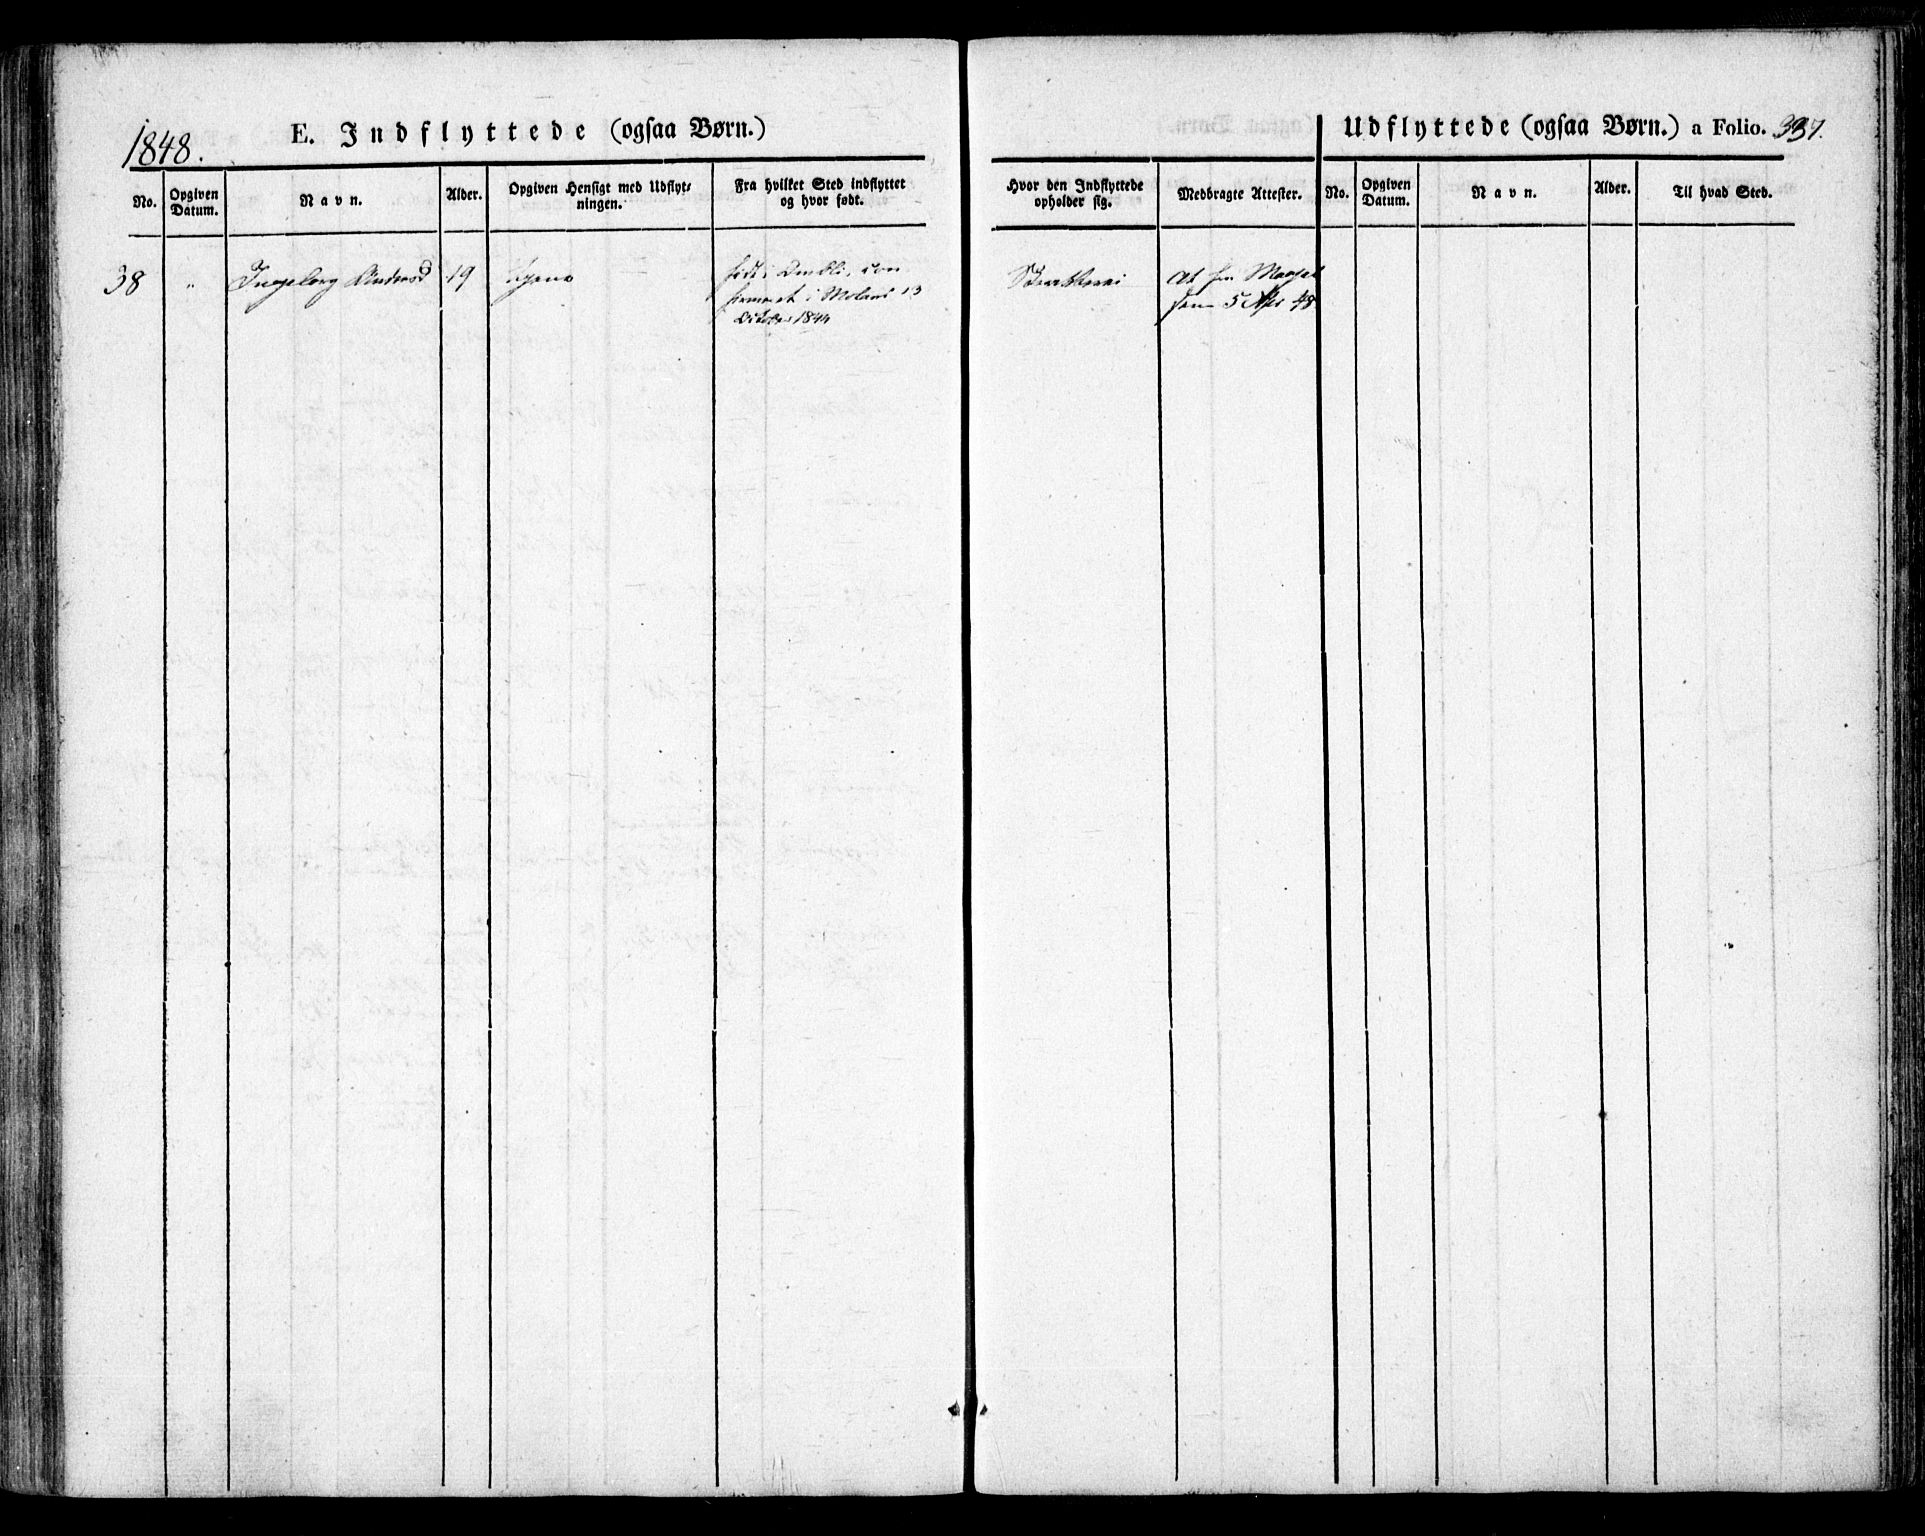 1848.
E. Indflyttede (ogsaa Børn.)
No.
Opgiven
Datum.
Navn.
Alder.
Opgiven Hensigt med Udflyt-
ningen.
Fra hvilket Sted indflyttet
og hvor født.
38
"
Ingeborg Andersd
19
tjene
født i Ombli, con
firmeret i Moland 13
October 1844
Udflyttede (ogsaa Børn.) a Folio. 337.
Hvor den Indflyttede
opholder sig.
Medbragte Attester.
No.
Opgiven
Datum.
Navn.
Alder.
Til hvad Sted.
At fra
5 Apr 48